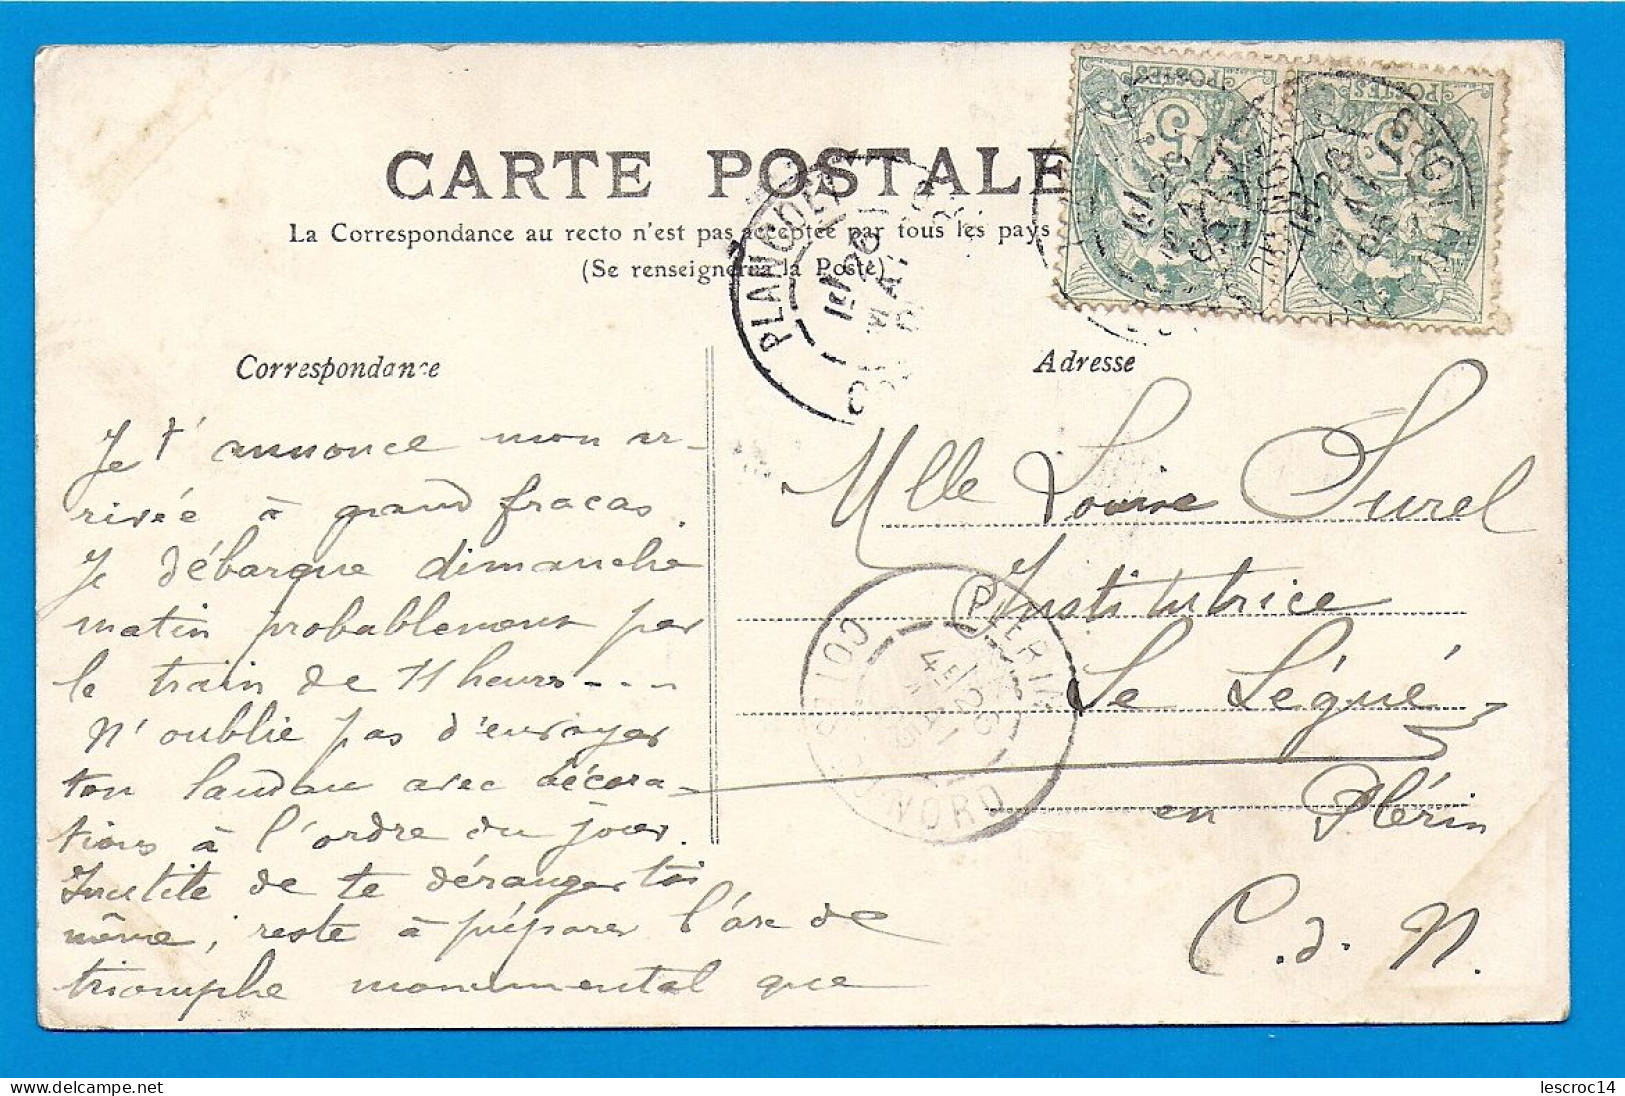 CARTE POSTALE
La Correspondance au recto n'est pas acceptée par tous les pays
(Se renseigner à la Poste)
Correspondance
Je t'annonce mon ar-
rivée à grand fracas.
Je débarque dimanche
matin probablement par
le train de 11 heures - - -
N'oublie pas d'envoyer
ton landau avec décora-
tions à l'ordre du jour.
Inutile de te déranger toi
même, reste à préparer l'arc de
triomphe monumental que
Adresse
Mlle Louise Surel
Institutrice
Le Légué
en Plérin
C. d. N.
POSTES
5
POSTES
5
PLANCOET
26
PLERIN
26
COTES DU NORD
lescroc14